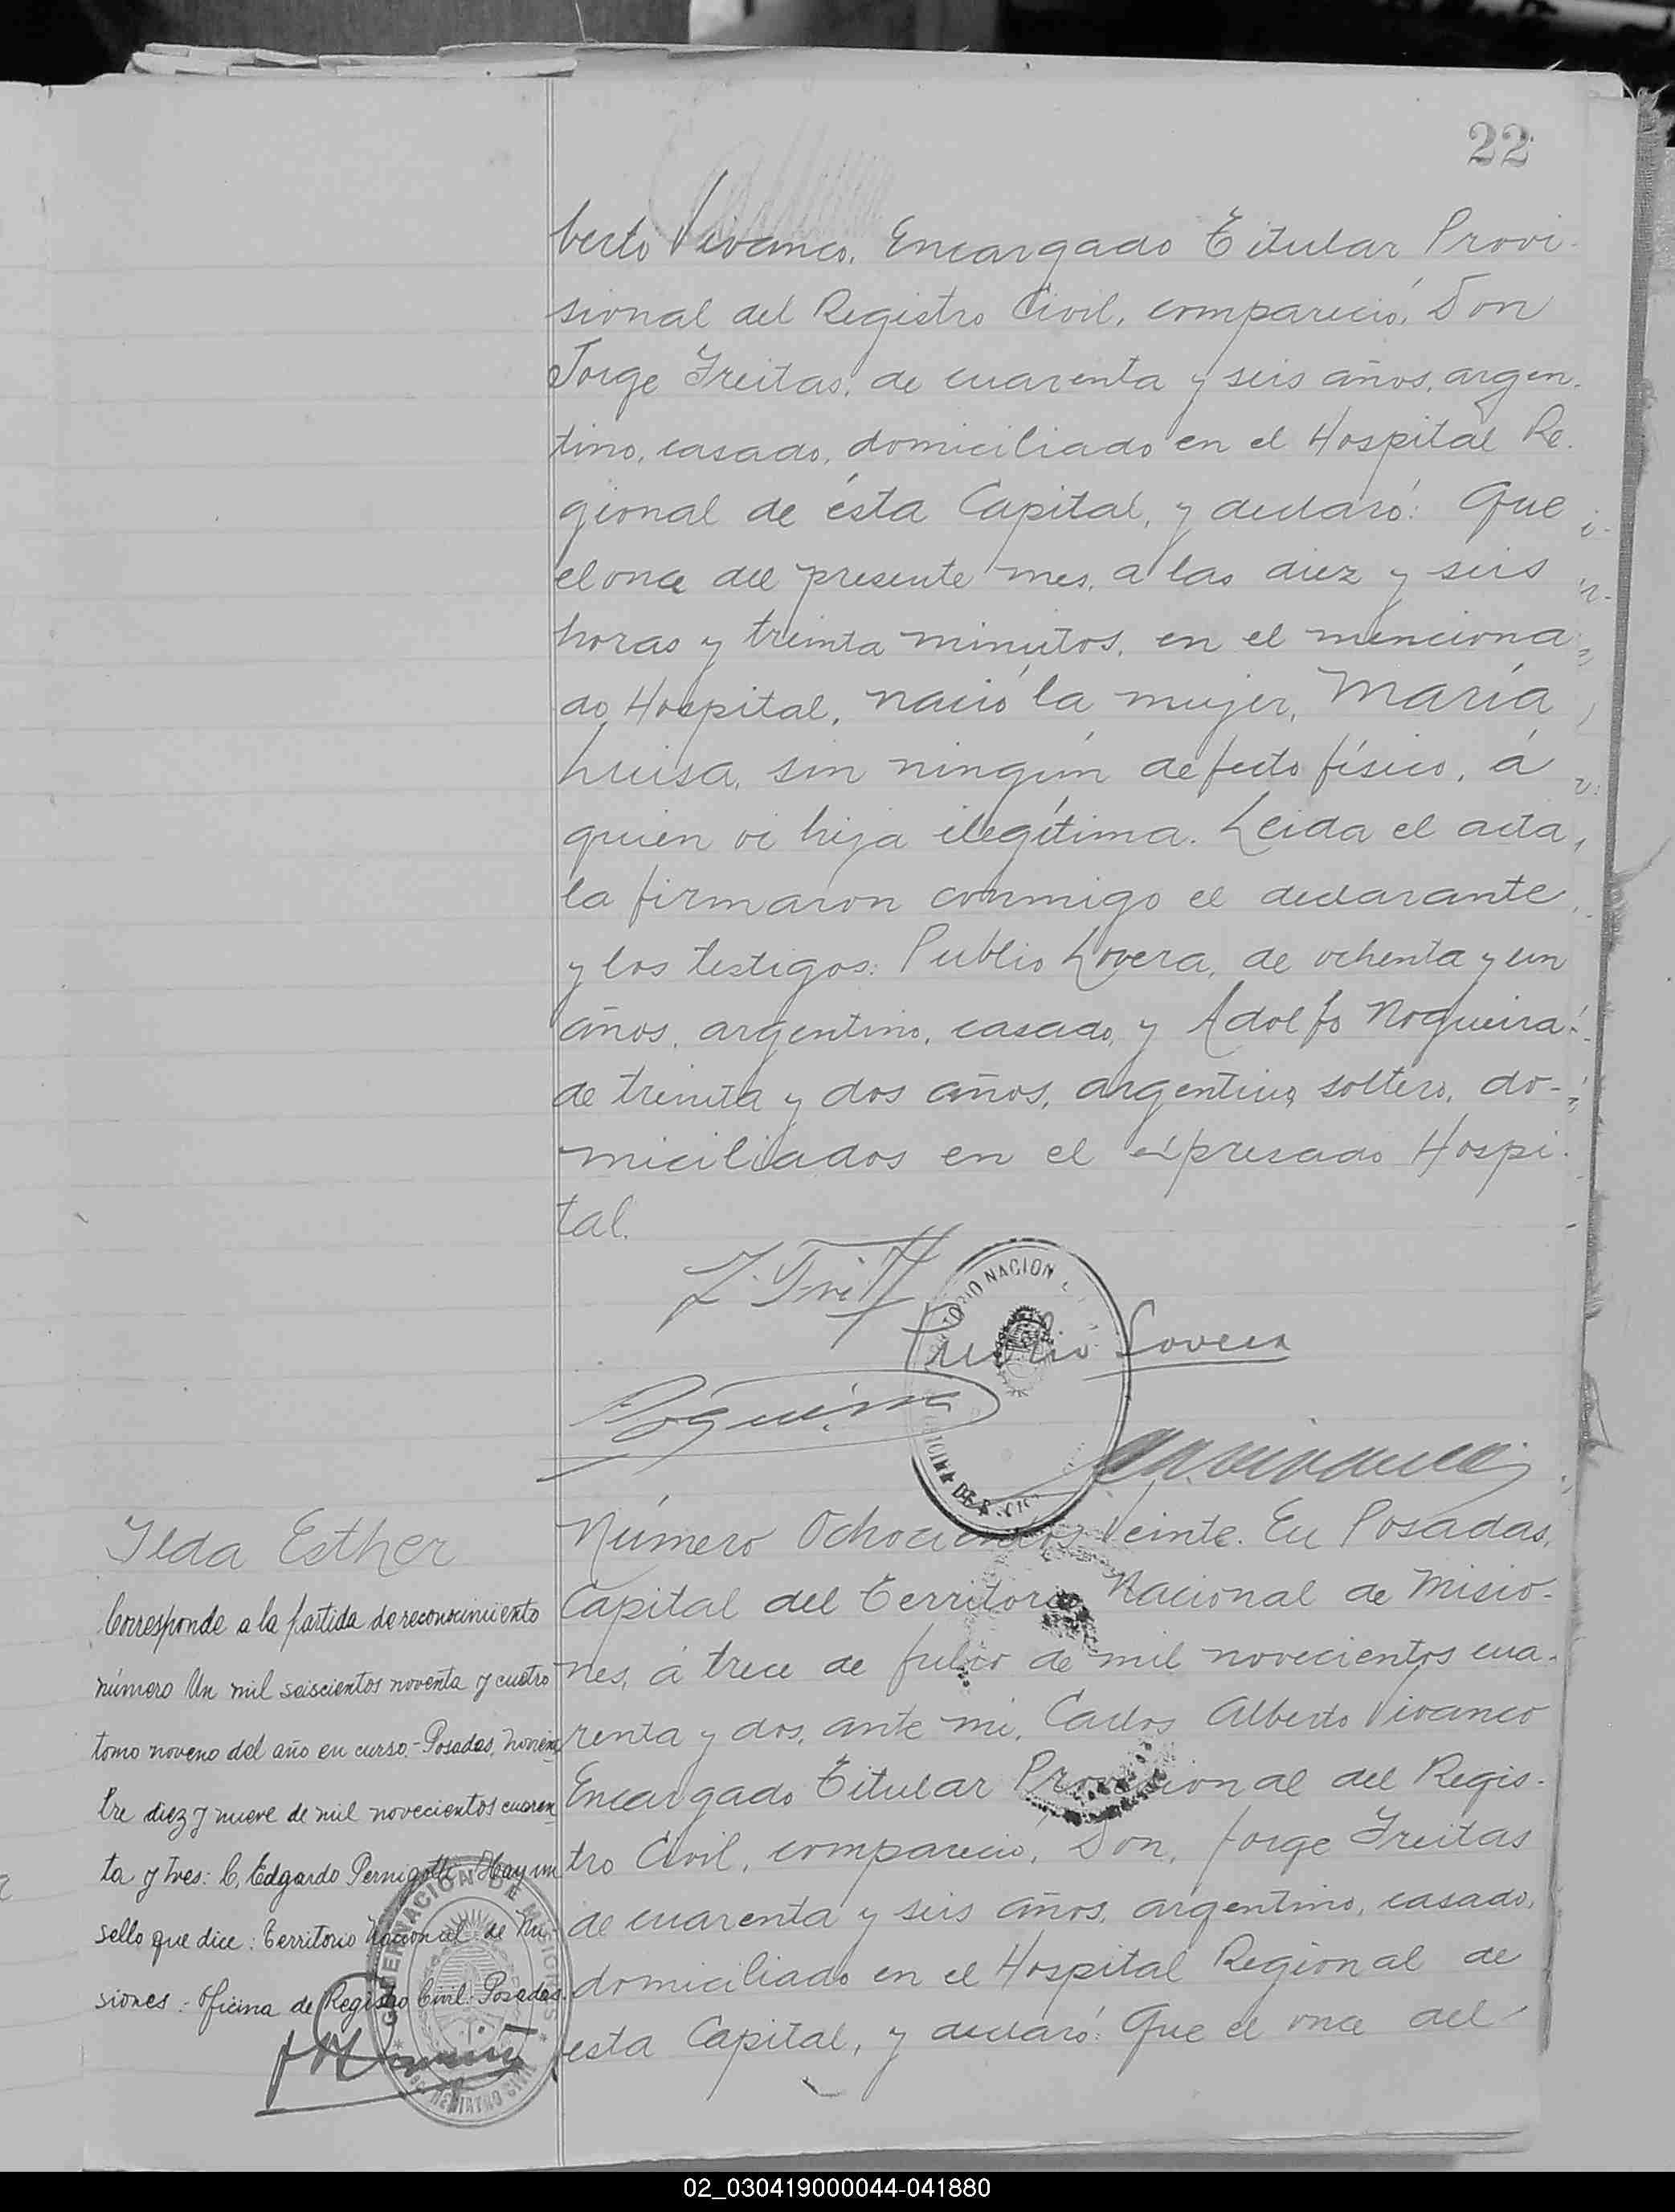 22
berto Vivanco, Encargado Titular Provi-
sional del Registro Civil, compareció, Don
Jorge Freitas, de cuarenta y seis años, argen-
tino, casado, domiciliado en el Hospital Re-
gional de ésta Capital, y declaró: Que
el once del presente mes, a las diez y seis
horas y treinta minutos, en el menciona-
do Hospital, nació la mujer, María
Luisa, sin ningún defecto físico, á
quien vi hija ilegítima. Leida el acta,
la firmaron conmigo el declarante,
y los testigos: Publio Lovera, de ochenta y un
años, argentino, casado, y Adolfo Nogueira
de treinta y dos años, argentino, soltero, do-
miciliados en el expresado Hospi-
tal.
Publio Lovera
Nogueira
NACION
Ilda Esther
Corresponde a la partida de reconocimiento
número Un mil seiscientos noventa y cuatro
tomo noveno del año en curso.- Posadas, Noviem
bre diez y nueve de mil novecientos cuaren
ta y tres: C. Edgardo Pernigotti Hay un
sello que dice: Territorio Nacional de Mi-
siones.- Oficina de Registro Civil. Posadas.
GOBERNACION DE MISIONES
REGISTRO CIVIL
Número Ochocientos Veinte. En Posadas,
Capital del Territorio Nacional de Misio-
nes, á trece de Julio de mil novecientos cua-
renta y dos, ante mi, Carlos Alberto Vivanco
Encargado Titular Provisional del Regis-
tro Civil, compareció, Don, Jorge Freitas
de cuarenta y seis años, argentino, casado,
domiciliado en el Hospital Regional de
esta Capital, y declaró: Que el once del
02_030419000044-041880